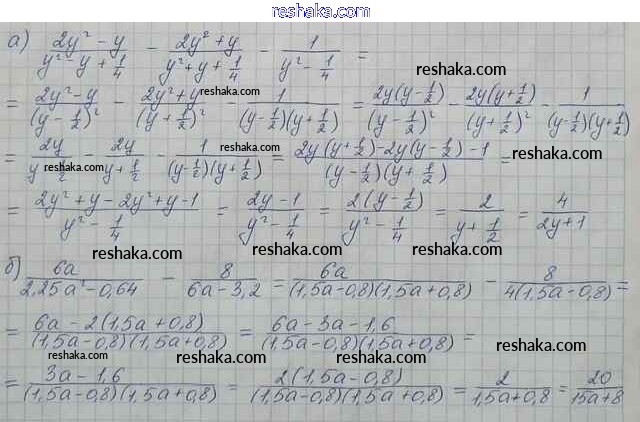 reshaka.com
а) (2y² - y)/(y² - y + 1/4) - (2y² + y)/(y² + y + 1/4) - 1/(y² - 1/4) =
reshaka.com
= (2y² - y)/(y - 1/2)² - (2y² + y)/(y + 1/2)² - 1/((y - 1/2)(y + 1/2)) = 2y(y - 1/2)/(y - 1/2)² - 2y(y + 1/2)/(y + 1/2)² - 1/((y - 1/2)(y + 1/2))
reshaka.com
= 2y/(y - 1/2) - 2y/(y + 1/2) - 1/((y - 1/2)(y + 1/2)) = (2y(y + 1/2) - 2y(y - 1/2) - 1)/((y - 1/2)(y + 1/2)) =
reshaka.com
reshaka.com
= (2y² + y - 2y² + y - 1)/(y² - 1/4) = (2y - 1)/(y² - 1/4) = 2(y - 1/2)/(y² - 1/4) = 2/(y + 1/2) = 4/(2y + 1)
reshaka.com reshaka.com
б) 6a/(2,25a² - 0,64) - 8/(6a - 3,2) = 6a/((1,5a - 0,8)(1,5a + 0,8)) - 8/(4(1,5a - 0,8)) =
reshaka.com
= (6a - 2(1,5a + 0,8))/((1,5a - 0,8)(1,5a + 0,8)) = (6a - 3a - 1,6)/((1,5a - 0,8)(1,5a + 0,8)) =
reshaka.com reshaka.com
= (3a - 1,6)/((1,5a - 0,8)(1,5a + 0,8)) = 2(1,5a - 0,8)/((1,5a - 0,8)(1,5a + 0,8)) = 2/(1,5a + 0,8) = 20/(15a + 8)
reshaka.com reshaka.com
reshaka.com